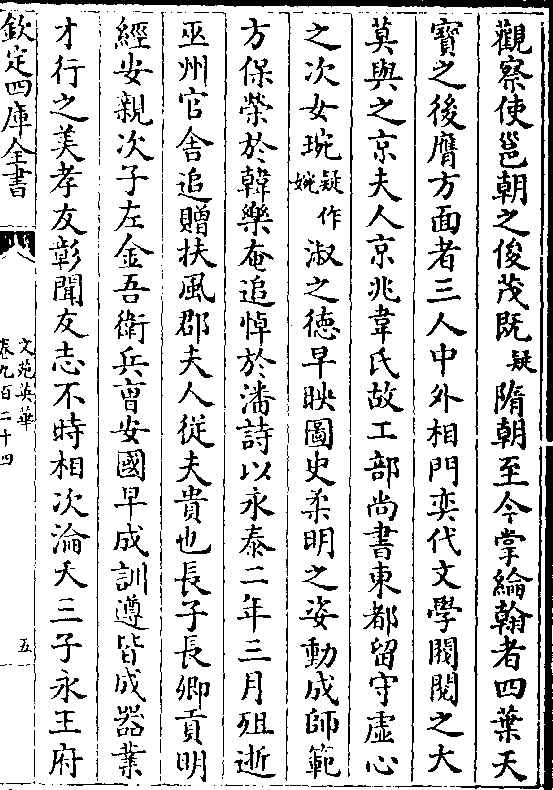 觀察使邕朝之俊茂既疑隋朝至今掌綸翰者四葉天
寶之後膺方面者三人中外相門奕代文學閥閱之大
莫與之京夫人京兆韋氏故工部尚書東都留守虛心
之次女琬疑作婉淑之徳早映圖史柔明之姿動成師範
方保榮於韓樂奄追悼於潘詩以永泰二年三月殂逝
巫州官舍追贈扶風郡夫人從夫貴也長子長卿貢明
經安親次子左金吾衛兵曹安國早成訓遵皆成器業
才行之美孝友彰聞友志不時相次淪夭三子永王府
欽定四庫全書
文苑英華
卷九百二十四
五